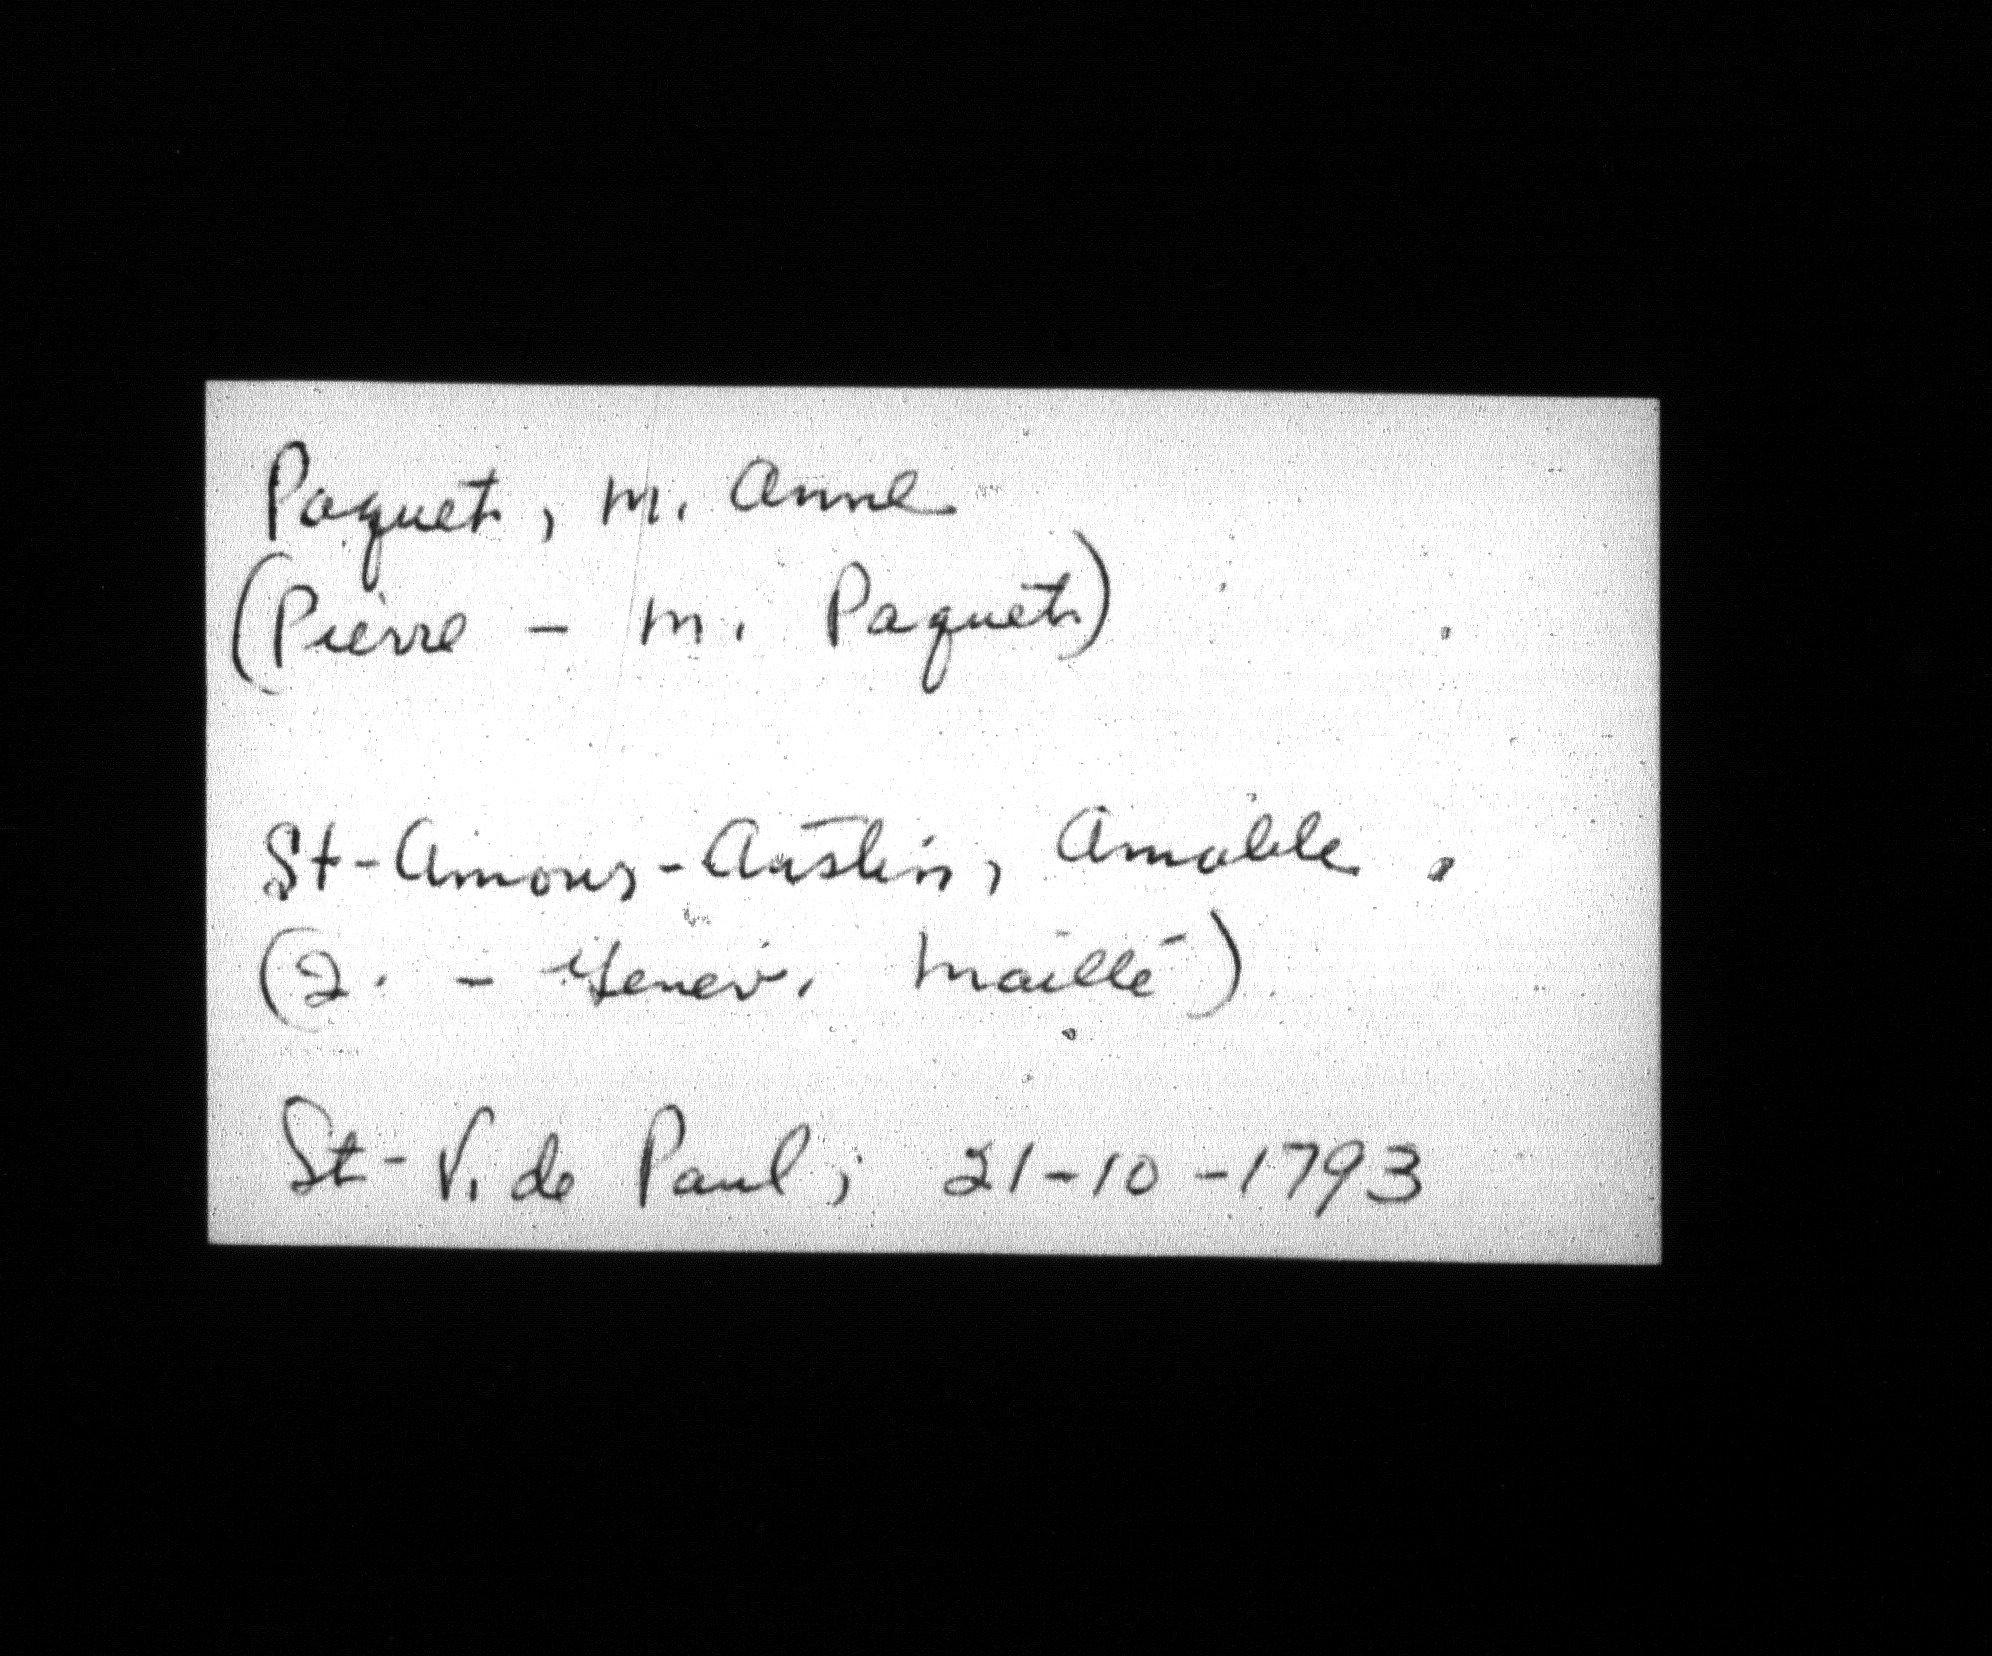 Paquet, M. Anne
(Pierre - M. Paquet)
St-Amour-Austin, Amable.
(2. - Genev. Maillé)
St-V. de Paul; 21-10-1793